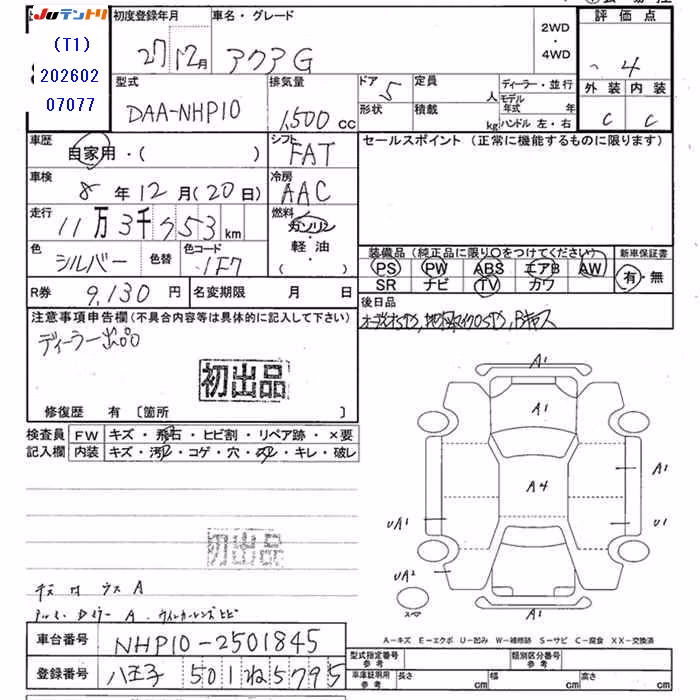 JUテントリ
(T1)
202602
07077
初度登録年月
27 12月
車名・グレード
アクア G
2WD
・
4WD
評価点
4
外装 内装
C C
型式
DAA-NHP10
排気量
1,500 cc
ドア 5
形状
定員 人
積載 kg
ディーラー・並行
モデル年式 年
ハンドル 左・右
車歴
自家用・( )
シフト
FAT
セールスポイント (正常に機能するものに限ります)
車検
8年 12月(20日)
冷房
AAC
走行
11万3千 753 km
燃料
ガソリン
・
軽油
・
( )
色
シルバー
色替
色コード
1F7
装備品 (純正品に限り○をつけてください)
PS PW ABS エアB AW
SR ナビ TV カワ
新車保証書
有・無
R券 9,130円
名変期限 月 日
後日品
注意事項申告欄 (不具合内容等は具体的に記入して下さい)
ディーラー出品
初出品
修復歴 有 〔箇所 〕
検査員記入欄
FW キズ・飛石・ヒビ割・リペア跡・×要
内装 キズ・汚レ・コゲ・穴・スレ・キレ・破レ
初出品
A1
A1
A4
A1
UA1
U1
UA2
スペア
A1
A…キズ E…エクボ U…凹み W…補修跡 S…サビ C…腐食 XX…交換済
車台番号 NHP10-2501845
登録番号 八王子 501 ね 5795
型式指定番号 参考
類別区分番号 参考
車庫証明用 参考
長さ cm
幅 cm
高さ cm